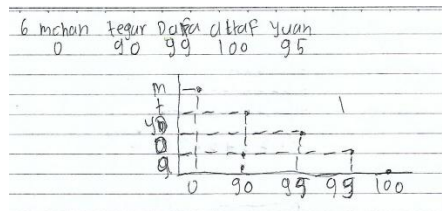 6 mchan tegar Daffa attaf yuan
0 90 99 100 95
m
t
y
D
a
0 90 95 99 100